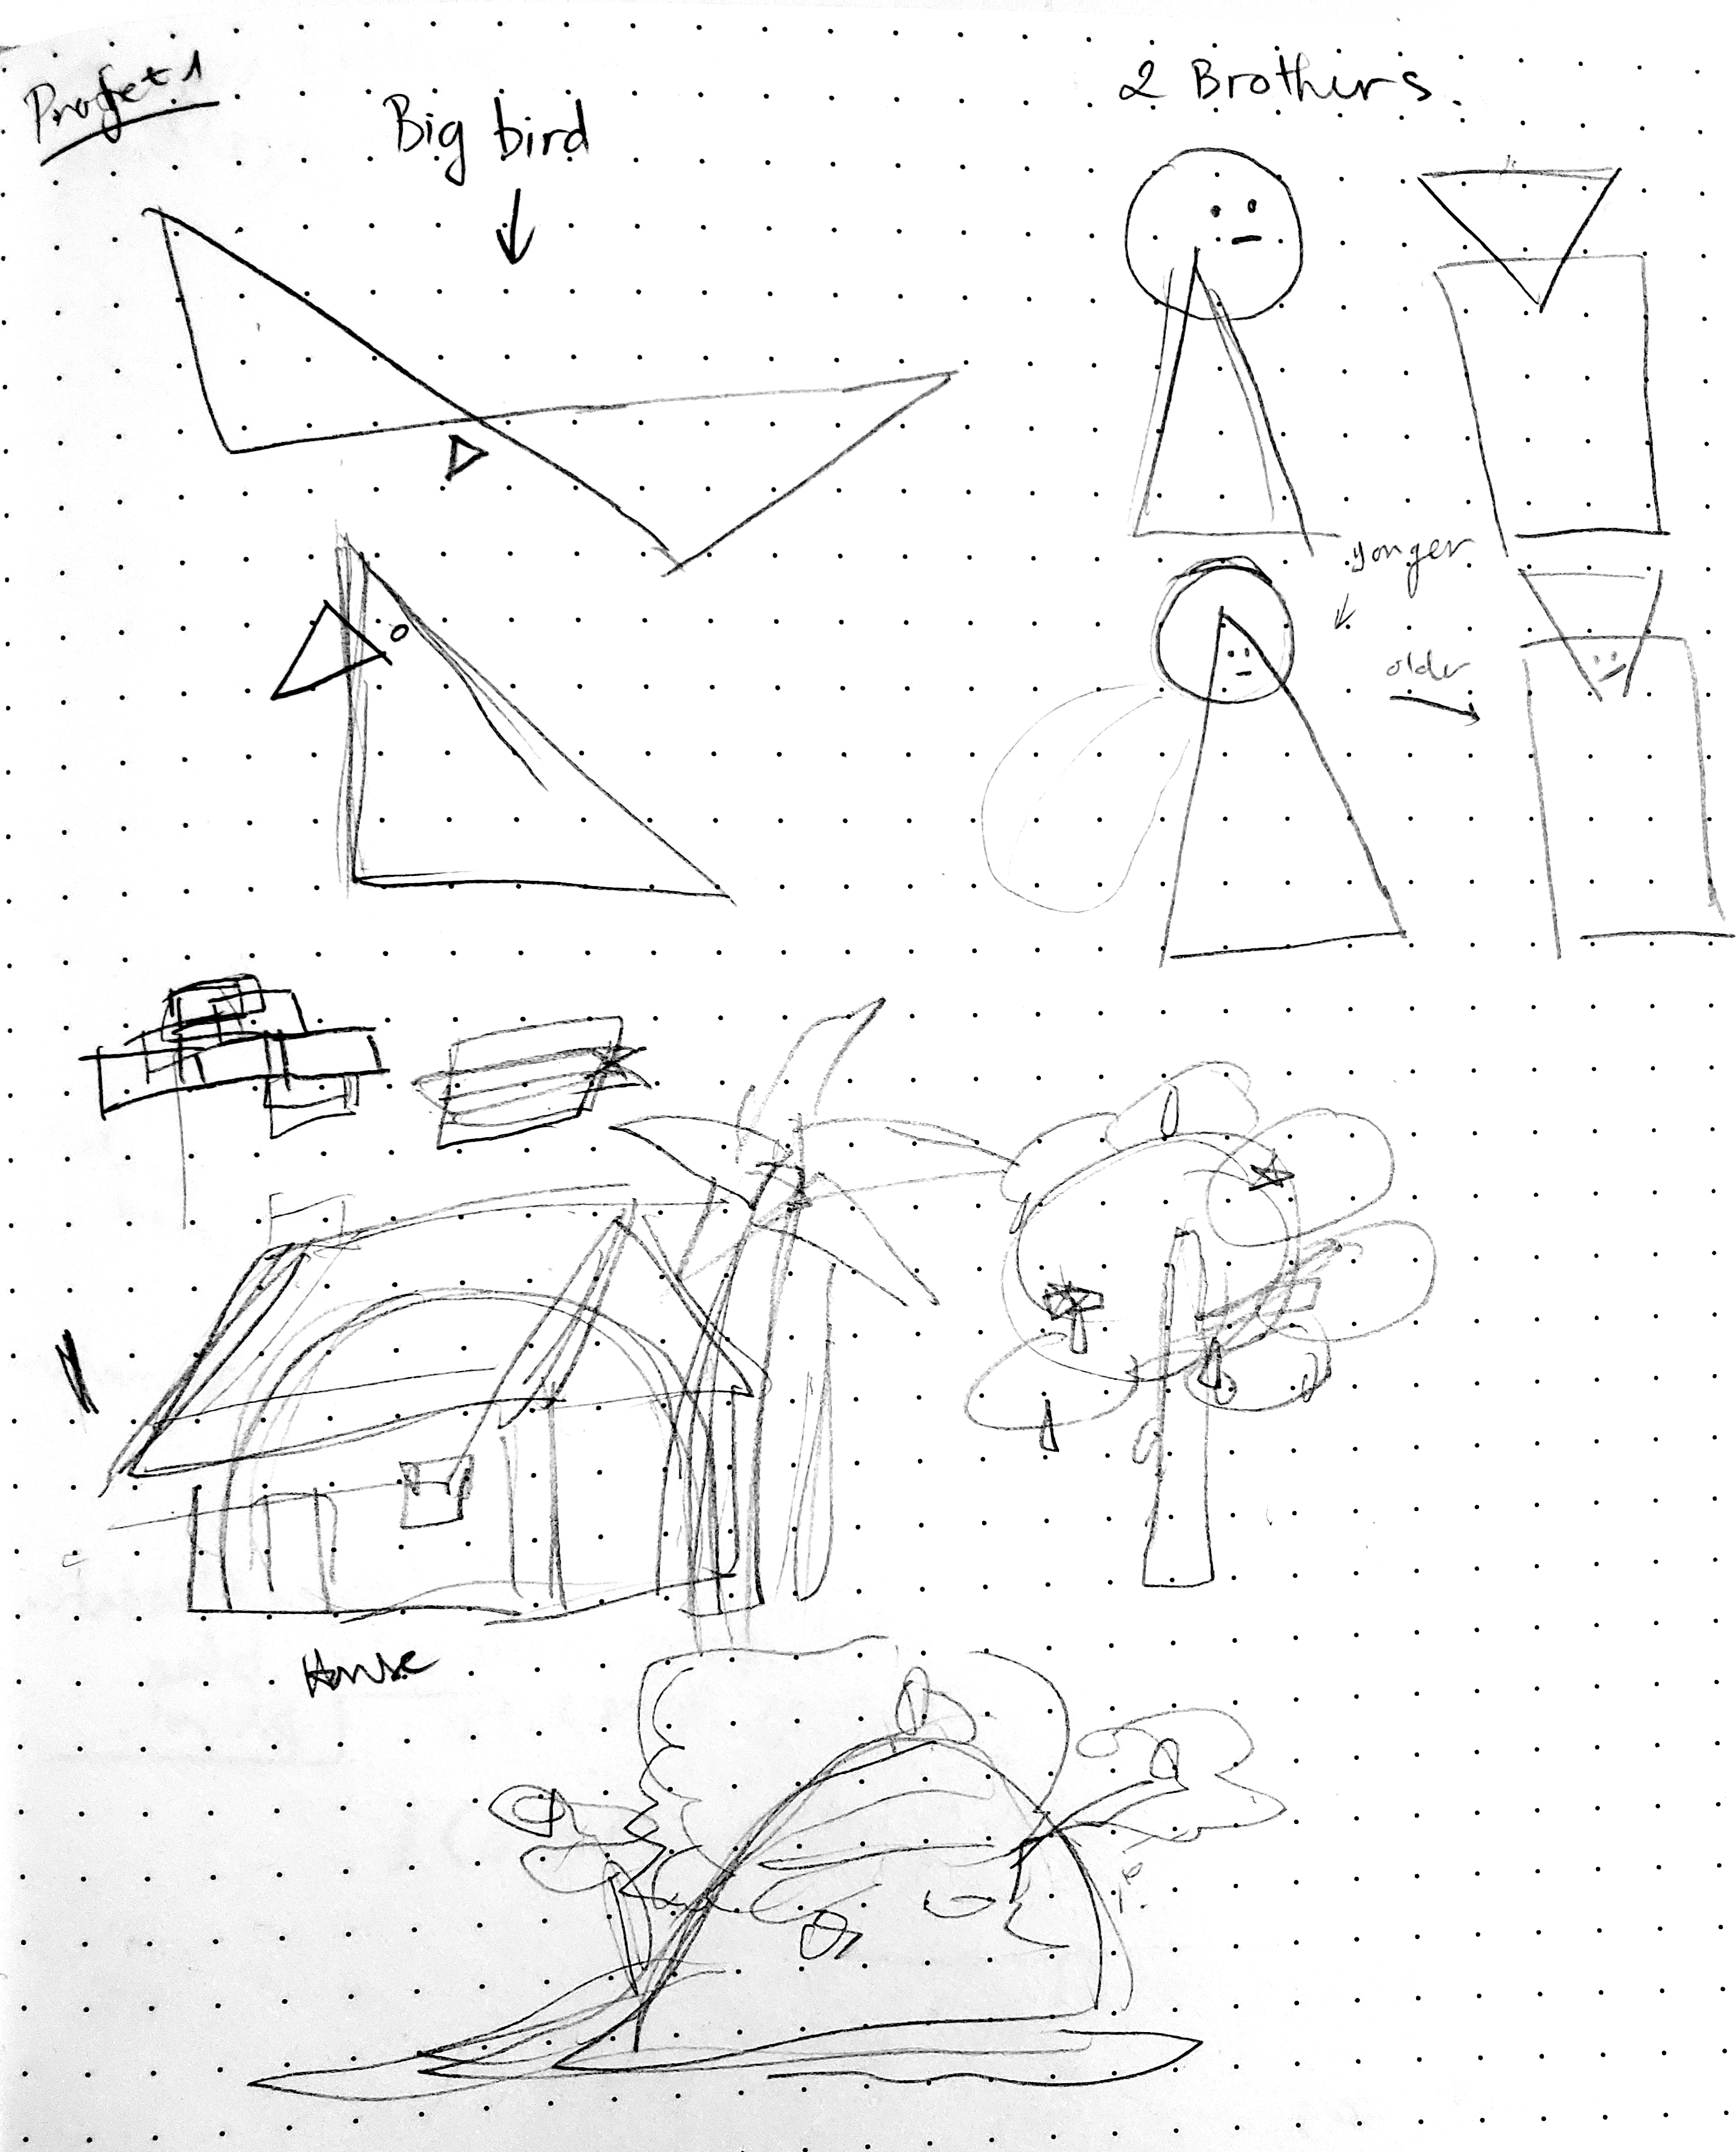 Projet 1
Big bird
2 Brothers.
yonger
older
House